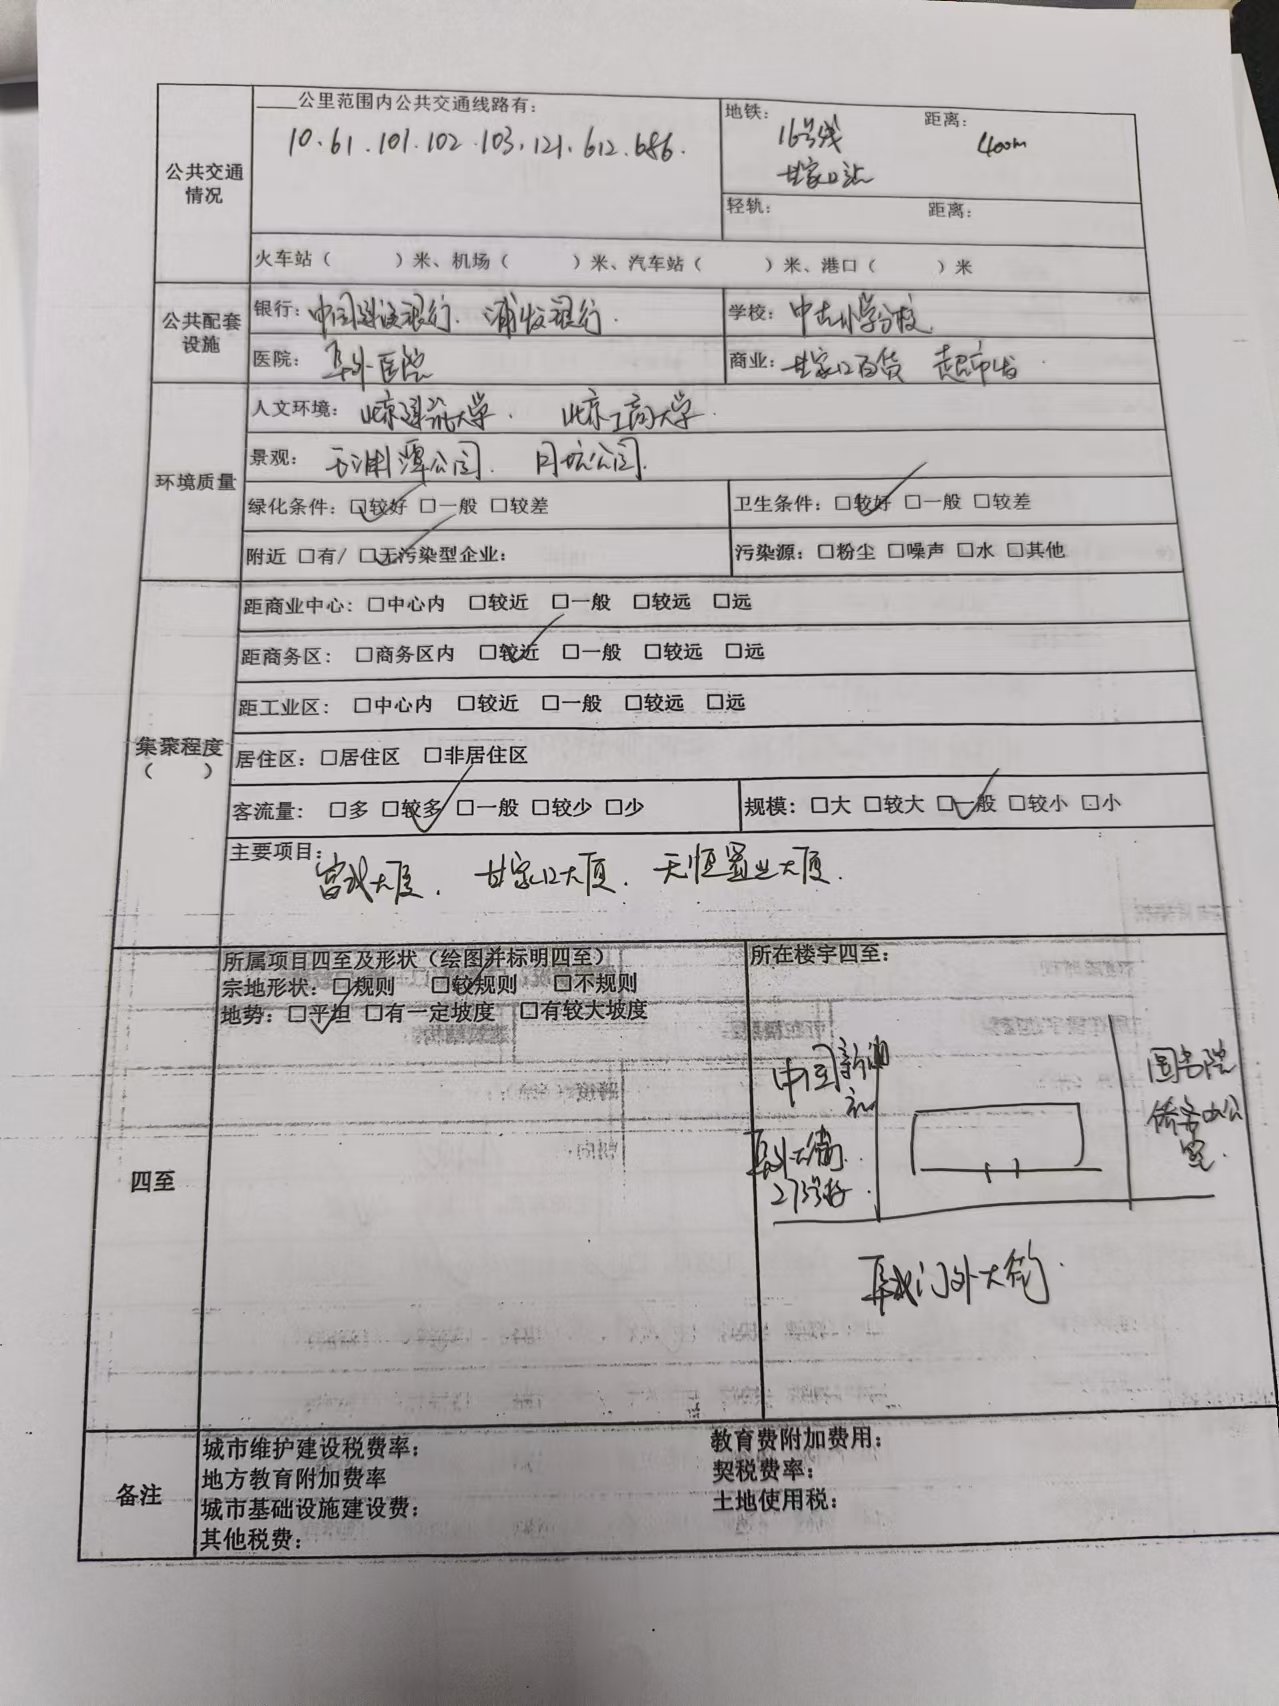 ____公里范围内公共交通线路有:
10.61.101.102.103.121.612.686.
地铁: 16号线 距离: 400m
甘家口站
公共交通情况
轻轨: 距离:
火车站( )米、机场( )米、汽车站( )米、港口( )米
公共配套设施
银行: 中国建设银行. 浦发银行.
学校: 中古小学分校
医院: 阜外医院
商业: 甘家口百货 超市发.
环境质量
人文环境: 北京建筑大学. 北京工商大学.
景观: 玉渊潭公园. 月坛公园.
绿化条件: ☑较好 □一般 □较差
卫生条件: ☑较好 □一般 □较差
附近 □有/ ☑无污染型企业:
污染源: □粉尘 □噪声 □水 □其他
集聚程度
( )
距商业中心: □中心内 □较近 □一般 □较远 □远
距商务区: □商务区内 ☑较近 □一般 □较远 □远
距工业区: □中心内 □较近 □一般 □较远 □远
居住区: □居住区 □非居住区
客流量: □多 ☑较多 □一般 □较少 □少
规模: □大 □较大 ☑一般 □较小 □小
主要项目:
大厦. 甘家口大厦. 天恒置业大厦.
四至
所属项目四至及形状(绘图并标明四至)
宗地形状: □规则 ☑较规则 □不规则
地势: ☑平坦 □有一定坡度 □有较大坡度
所在楼宇四至:
中国新闻社
阜外大街
27号院.
国务院
侨务办公室.
阜成门外大街.
备注
城市维护建设税费率: 教育费附加费用:
地方教育附加费率 契税费率:
城市基础设施建设费: 土地使用税:
其他税费: